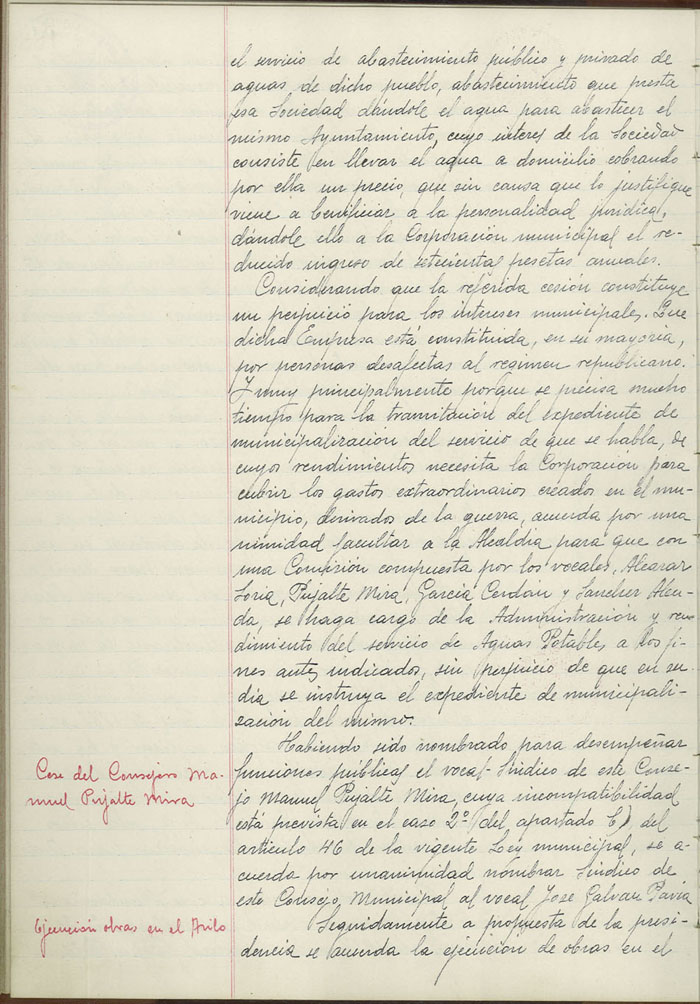 el servicio de abastecimiento público y privado de
aguas de dicho pueblo, abastecimiento que presta
esa Sociedad dándole el agua para abastecer el
mismo Ayuntamiento, cuyo interes de la Sociedad
consiste en llevar el agua a domicilio cobrando
por ella un precio, que sin causa que lo justifique
viene a beneficiar a la personalidad juridica,
dándole ello a la Corporación municipal el re-
ducido ingreso de setecientas pesetas anuales.
Considerando que la referida cesión constituye
un perjuicio para los intereses municipales. Que
dicha Empresa está constituida, en su mayoria,
por personas desafectas al regimen republicano.
Y muy principalmente porque se precisa mucho
tiempo para la tramitación del expediente de
municipalización del servicio de que se habla, de
cuyos rendimientos necesita la Corporación para
cubrir los gastos extraordinarios creados en el mu-
nicipio, derivados de la guerra, acuerda por una
nimidad facultar a la Alcaldia para que con
una Comisión compuesta por los vocales, Alcaraz
Soria, Pujalte Mira, García Cerdán y Sanchez
da, se haga cargo de la Administración y ren
dimiento del servicio de Aguas Potables a los fi-
nes antes indicados, sin perjuicio de que en su
dia se instruya el expediente de municipali-
zación del mismo.
Habiendo sido nombrado para desempeñar
Cese del Consejero Ma-
nuel Pujalte Mira
funciones públicas el vocal-Sindico de este Conse-
jo Manuel Pujalte Mira, cuya incompatibilidad
está prevista en el caso 2º del apartado del
articulo 46 de la vigente Ley municipal, se a-
cuerda por unanimidad nombrar Sindico de
este Consejo Municipal al vocal Jose Galvan
Ejecución obras en el Asilo
Seguidamente a propuesta de la presi-
dencia se acuerda la ejecución de obras en el